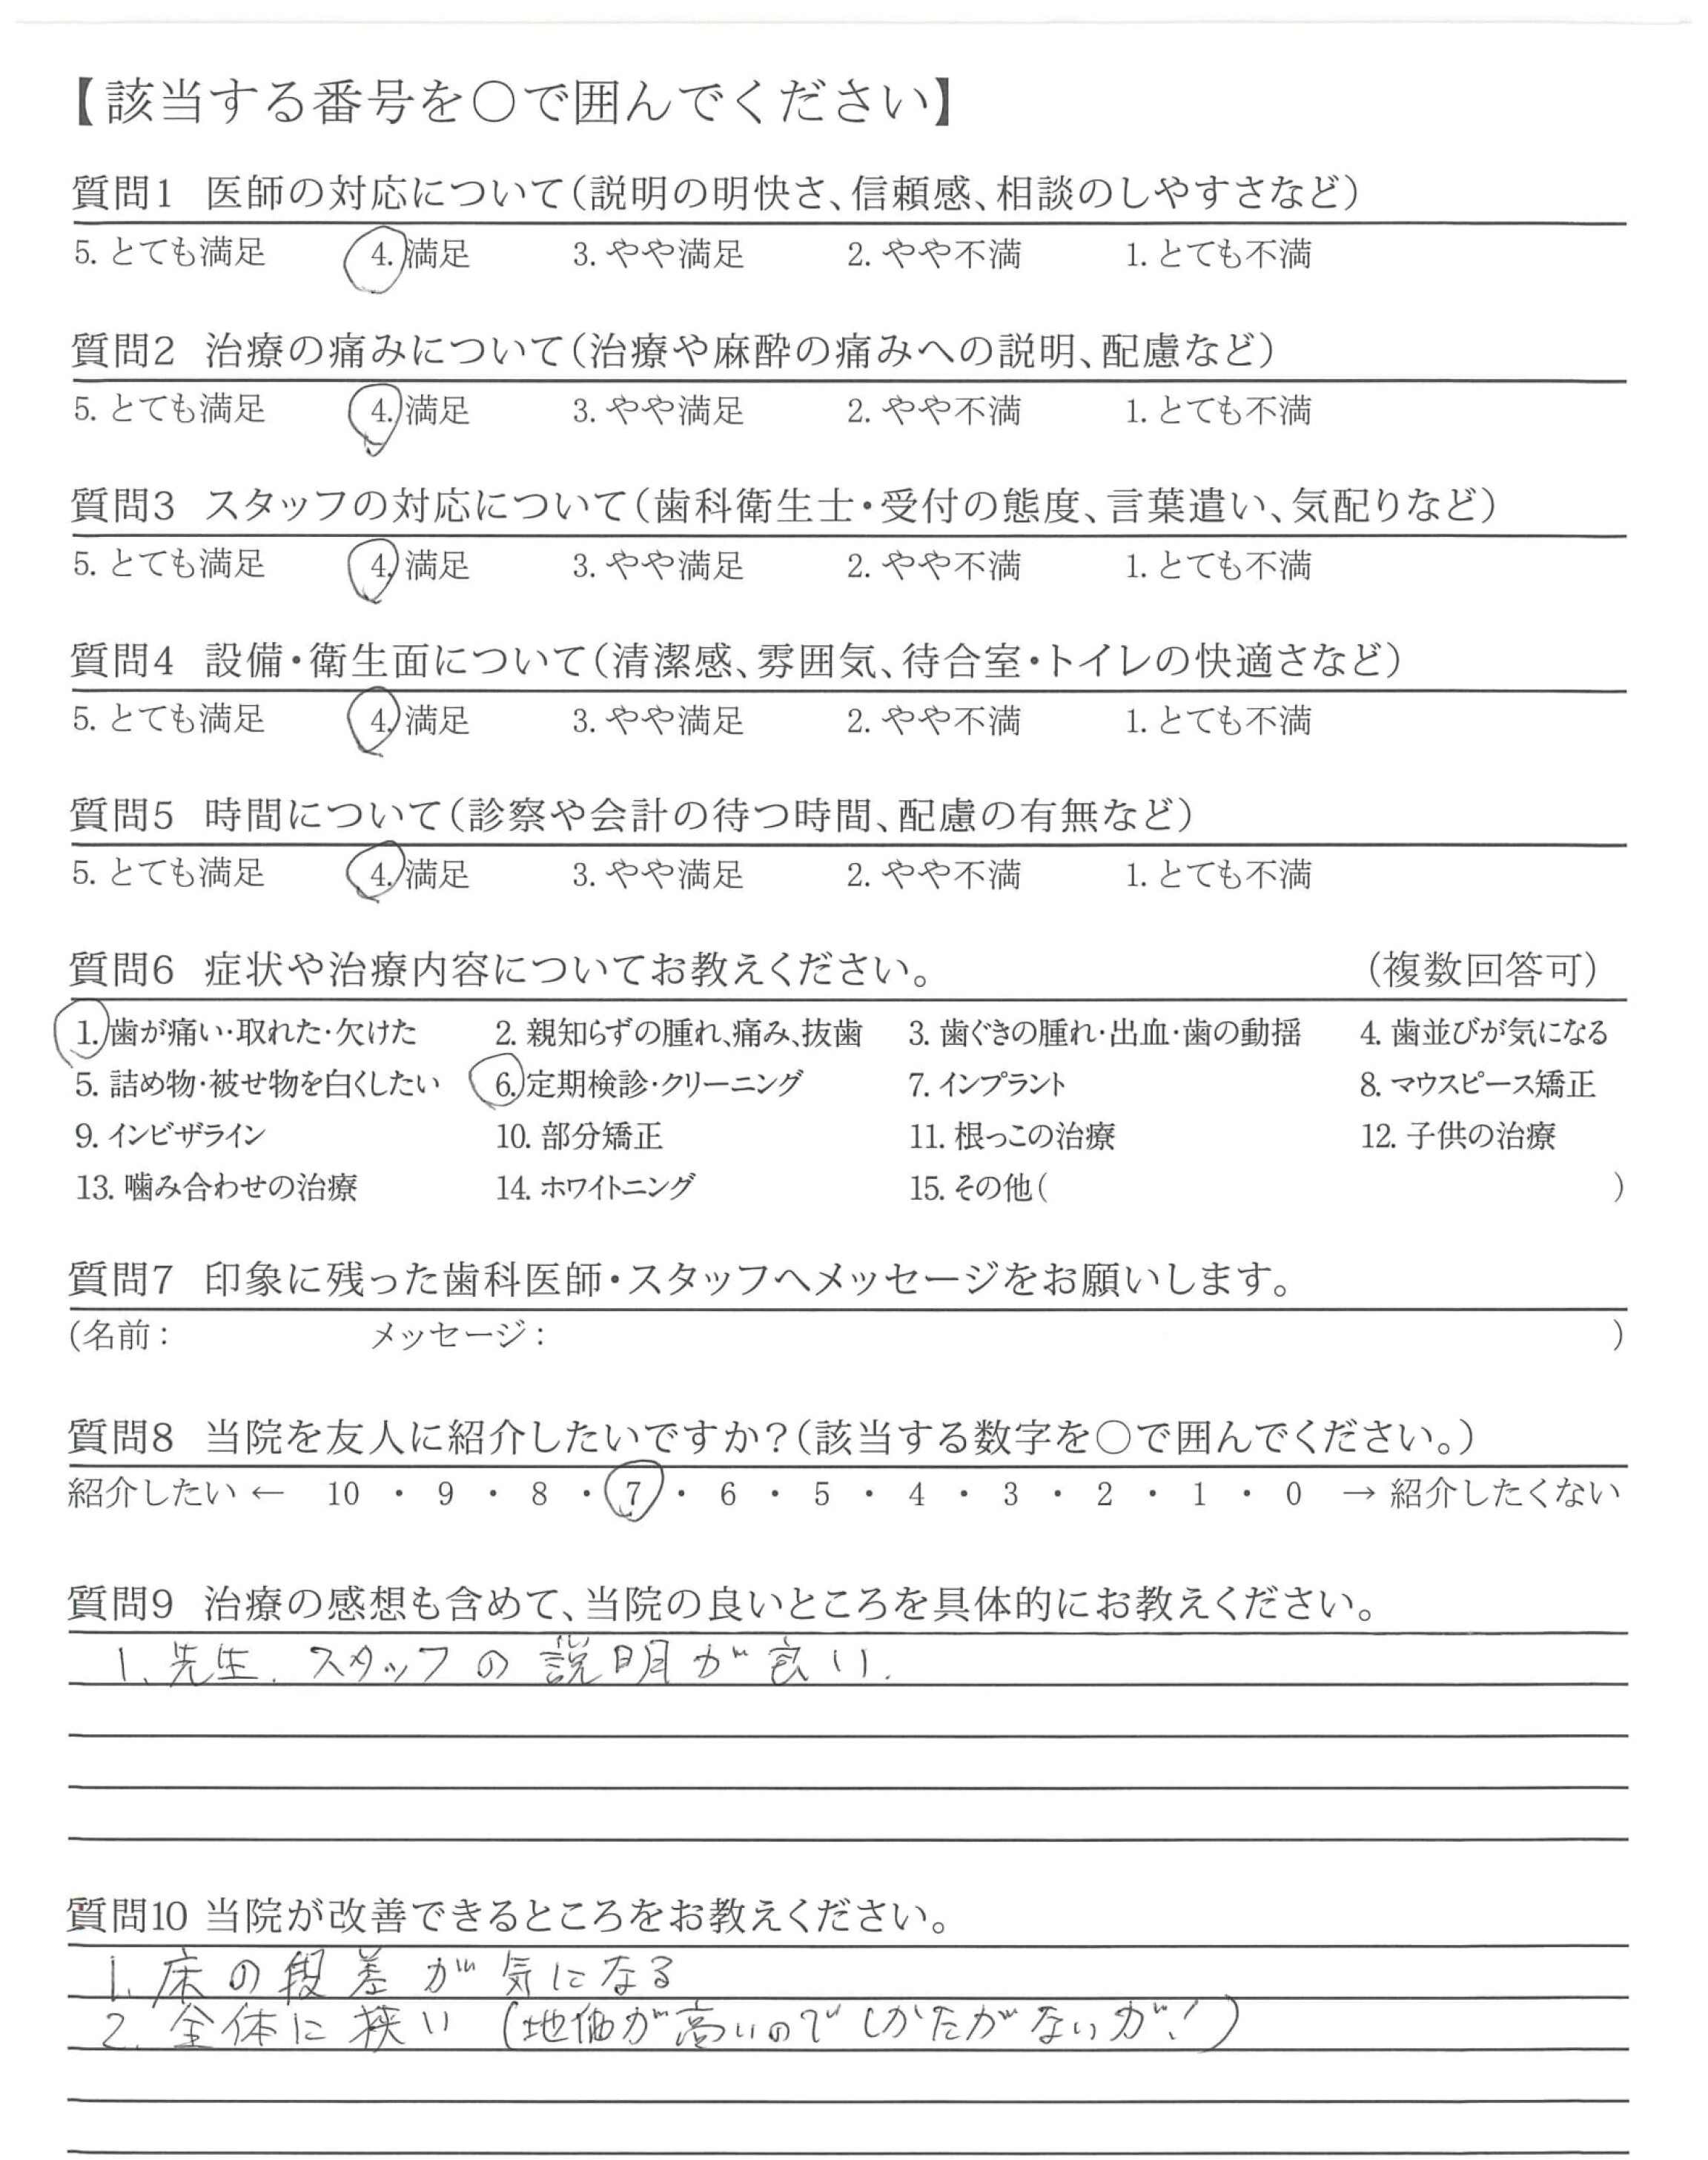 【該当する番号を○で囲んでください】
質問1 医師の対応について(説明の明快さ、信頼感、相談のしやすさなど)
5. とても満足 4. 満足 3. やや満足 2. やや不満 1. とても不満
質問2 治療の痛みについて(治療や麻酔の痛みへの説明、配慮など)
5. とても満足 4. 満足 3. やや満足 2. やや不満 1. とても不満
質問3 スタッフの対応について(歯科衛生士・受付の態度、言葉遣い、気配りなど)
5. とても満足 4. 満足 3. やや満足 2. やや不満 1. とても不満
質問4 設備・衛生面について(清潔感、雰囲気、待合室・トイレの快適さなど)
5. とても満足 4. 満足 3. やや満足 2. やや不満 1. とても不満
質問5 時間について(診察や会計の待つ時間、配慮の有無など)
5. とても満足 4. 満足 3. やや満足 2. やや不満 1. とても不満
質問6 症状や治療内容についてお教えください。 (複数回答可)
1. 歯が痛い・取れた・欠けた 2. 親知らずの腫れ、痛み、抜歯 3. 歯ぐきの腫れ・出血・歯の動揺 4. 歯並びが気になる
5. 詰め物・被せ物を白くしたい 6. 定期検診・クリーニング 7. インプラント 8. マウスピース矯正
9. インビザライン 10. 部分矯正 11. 根っこの治療 12. 子供の治療
13. 噛み合わせの治療 14. ホワイトニング 15. その他( )
質問7 印象に残った歯科医師・スタッフへメッセージをお願いします。
(名前: メッセージ: )
質問8 当院を友人に紹介したいですか?(該当する数字を○で囲んでください。)
紹介したい ← 10 ・ 9 ・ 8 ・ 7 ・ 6 ・ 5 ・ 4 ・ 3 ・ 2 ・ 1 ・ 0 → 紹介したくない
質問9 治療の感想も含めて、当院の良いところを具体的にお教えください。
1. 先生. スタッフの説明が良い.
質問10 当院が改善できるところをお教えください。
1. 床の段差が気になる
2. 全体に狭い (地価が高いのでしかたがないが!)